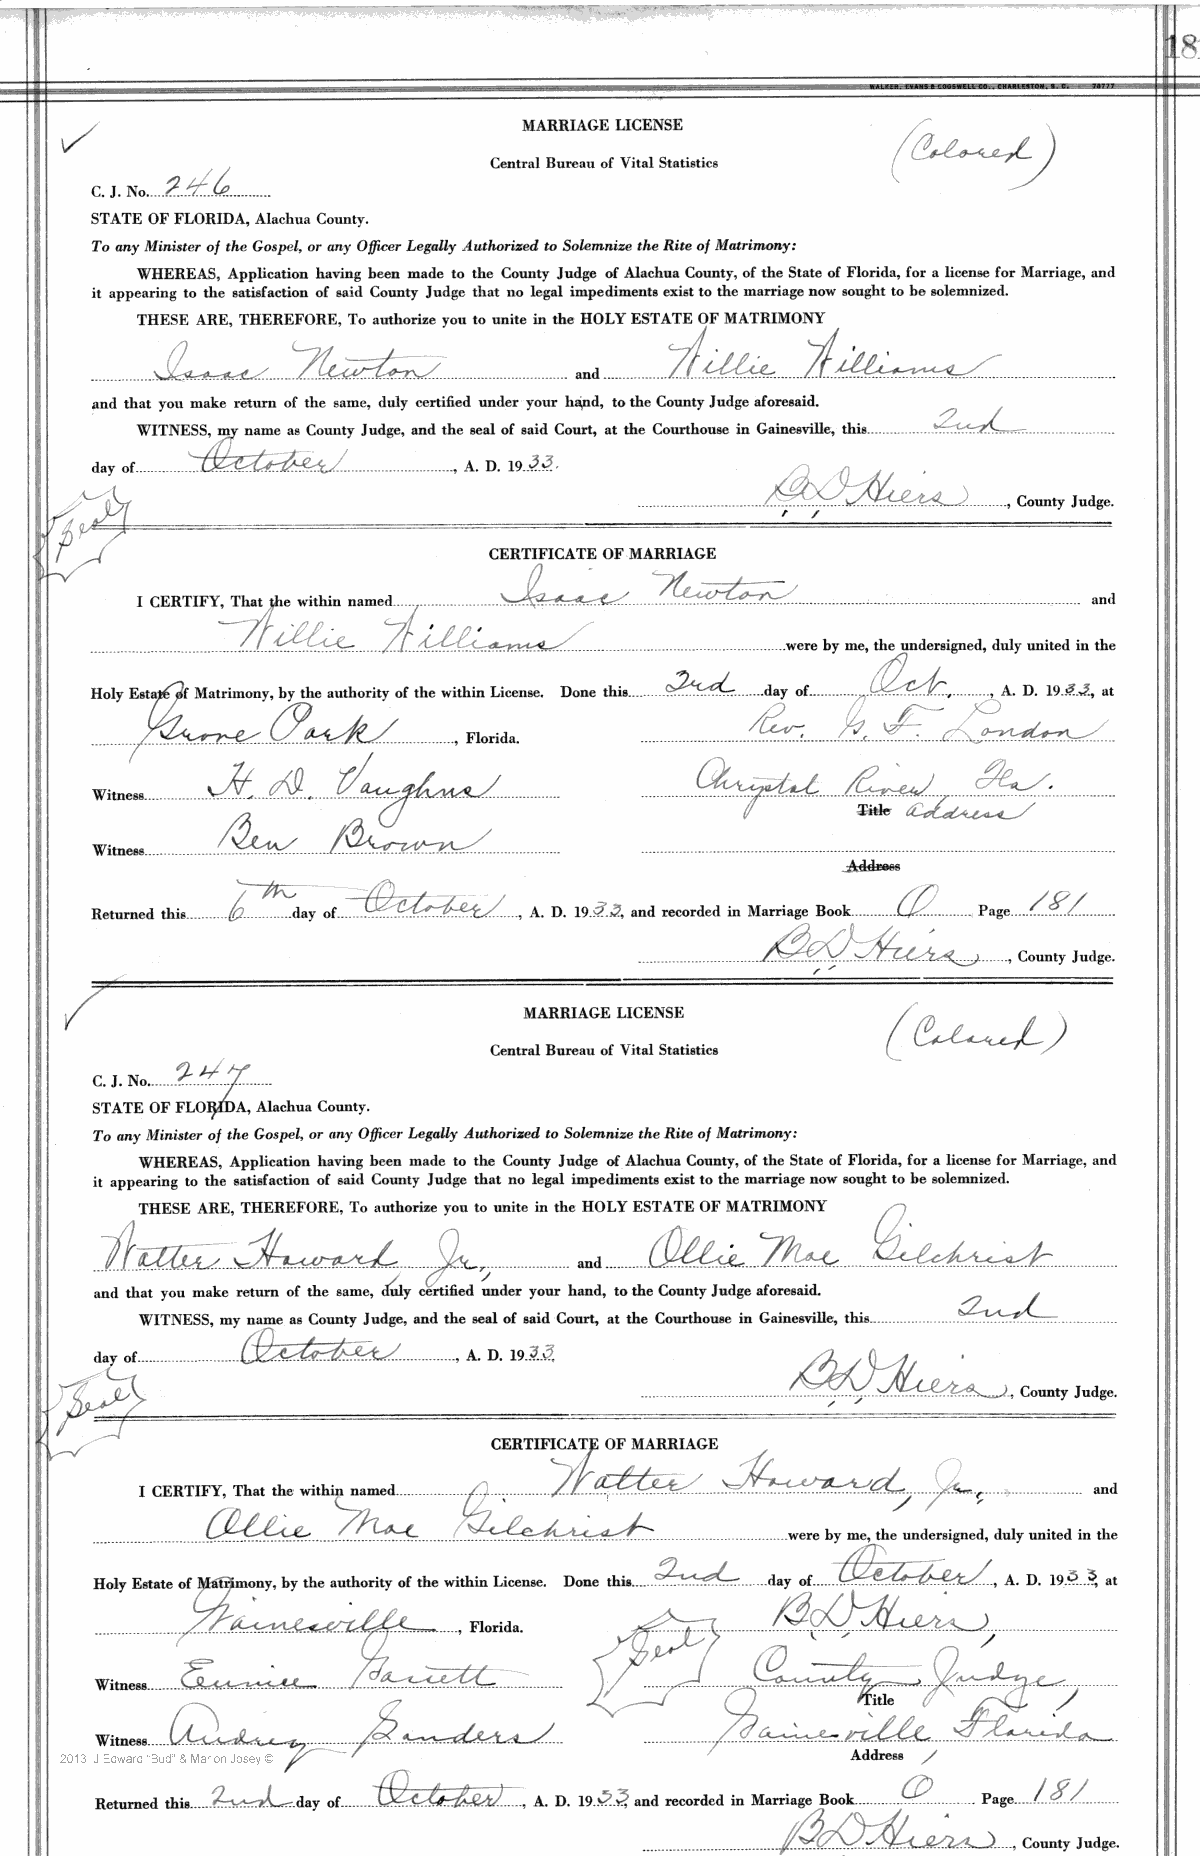 181
WALKER, EVANS & COGSWELL CO., CHARLESTON, S. C. 70777
MARRIAGE LICENSE
(Colored)
Central Bureau of Vital Statistics
C. J. No. 246
STATE OF FLORIDA, Alachua County.
To any Minister of the Gospel, or any Officer Legally Authorized to Solemnize the Rite of Matrimony:
WHEREAS, Application having been made to the County Judge of Alachua County, of the State of Florida, for a license for Marriage, and
it appearing to the satisfaction of said County Judge that no legal impediments exist to the marriage now sought to be solemnized.
THESE ARE, THEREFORE, To authorize you to unite in the HOLY ESTATE OF MATRIMONY
Isaac Newton and Willie Williams
and that you make return of the same, duly certified under your hand, to the County Judge aforesaid.
WITNESS, my name as County Judge, and the seal of said Court, at the Courthouse in Gainesville, this 2nd
day of October, A. D. 1933.
B D Hiers, County Judge.
Seal
CERTIFICATE OF MARRIAGE
I CERTIFY, That the within named Isaac Newton and
Willie Williams were by me, the undersigned, duly united in the
Holy Estate of Matrimony, by the authority of the within License. Done this 3rd day of Oct., A. D. 1933, at
Grove Park, Florida. Rev. G. F. London
Witness H. D. Vaughns Chrystal River, Fla.
Title address
Witness Ben Brown
Address
Returned this 6th day of October, A. D. 1933, and recorded in Marriage Book O Page 181
B D Hiers, County Judge.
MARRIAGE LICENSE
(Colored)
Central Bureau of Vital Statistics
C. J. No. 247
STATE OF FLORIDA, Alachua County.
To any Minister of the Gospel, or any Officer Legally Authorized to Solemnize the Rite of Matrimony:
WHEREAS, Application having been made to the County Judge of Alachua County, of the State of Florida, for a license for Marriage, and
it appearing to the satisfaction of said County Judge that no legal impediments exist to the marriage now sought to be solemnized.
THESE ARE, THEREFORE, To authorize you to unite in the HOLY ESTATE OF MATRIMONY
Walter Howard, Jr., and Ollie Mae Gilchrist
and that you make return of the same, duly certified under your hand, to the County Judge aforesaid.
WITNESS, my name as County Judge, and the seal of said Court, at the Courthouse in Gainesville, this 2nd
day of October, A. D. 1933.
B D Hiers, County Judge.
Seal
CERTIFICATE OF MARRIAGE
I CERTIFY, That the within named Walter Howard, Jr., and
Ollie Mae Gilchrist were by me, the undersigned, duly united in the
Holy Estate of Matrimony, by the authority of the within License. Done this 2nd day of October, A. D. 1933, at
Gainesville, Florida. Seal B D Hiers,
Witness Eunice County Judge,
Title
Witness Audrey Sanders Gainesville, Florida
2013 J Edward "Bud" & Marion Josey ©
Address
Returned this 2nd day of October, A. D. 1933, and recorded in Marriage Book O Page 181
B D Hiers, County Judge.